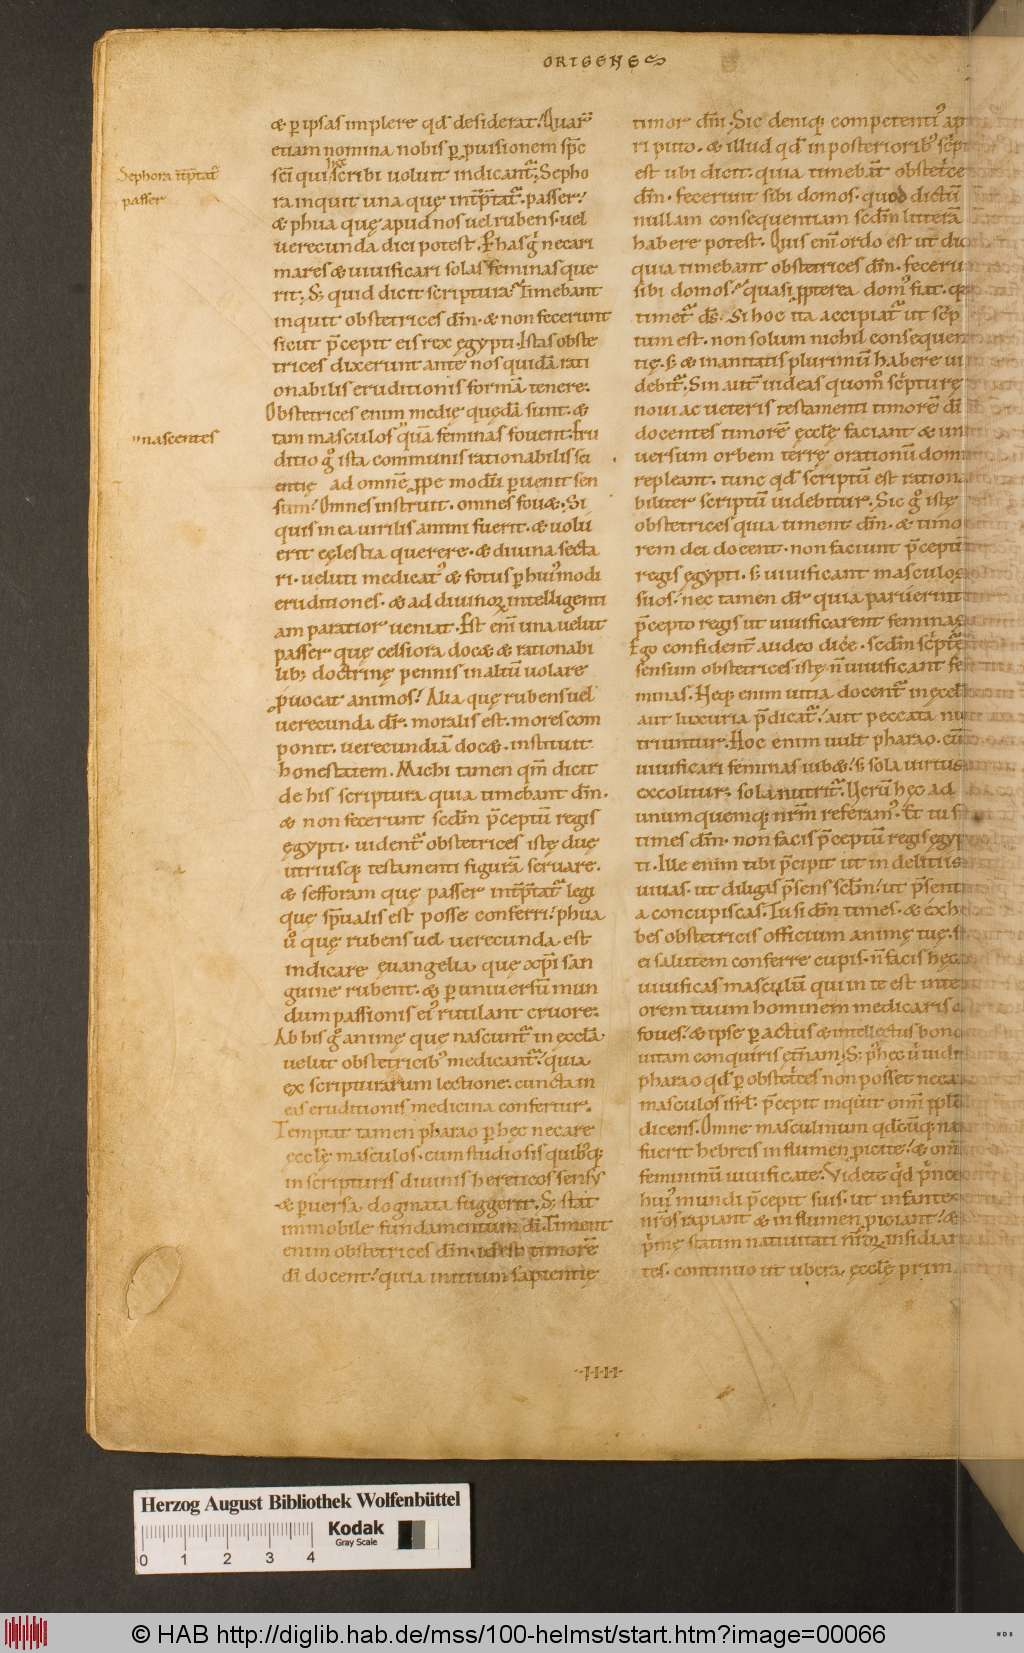 ORIGENES
& p ipsas implere qđ desiderat? Quar̄
etiam nomina nobis p puisionem sp̄c
sc̄i qui hęc scribi uoluit indicant᷑. Sepho
ra inquit una quę int̄p̄tat᷑ passer?
& phua quę apud nos uel rubens uel
uerecunda dici potest. P has g̊ necari
mares & uiuificari solas feminas quę
rit. S; quid dicit scriptura? Timebant
inquit obstetrices dm̄. & non fecerunt
sicut p̄cepit eis rex ęgypti. Istas obste
trices dixerunt ante nos quidā rati
onabilis eruditionis formā tenere.
Obstetrices enim medię quędā sunt. &
tam masculos quā feminas fouent. Eru
ditio g̊ ista communis rationabilis sci
entię ad omnē ꝓpe modū peruenit sen
sum. Omnes instruit. omnes fou&. Si
quis in ea uirilis animi fuerit. & uolu
erit cęlestia querere. & diuina secta
ri. ueluti medicat᷑ & fotus p hui᷒modi
eruditiones. & ad diuinoꝝ intelligenti
am paratior ueniat. Est enī una uelut
passer quę celsiora doc& & rationabi
lib; doctrinę pennis in altū uolare
ꝓuocat animos? Alia quę rubens uel
uerecunda dr̄. moralis est. mores com
ponit. uerecundiā doc&. instituit
honestatem. Michi tamen qm̄ dicit
de his scriptura quia timebant dm̄.
& non fecerunt scdm̄ p̄ceptū regis
ęgypti. uident᷑ obstetrices istę duę
utriusq; testamenti figurā seruare.
& sefforam quę passer int̄p̄tat᷑ legi
quę sp̄ualis est posse conferri? phua
ů quę rubens uel uerecunda est
indicare euangelia. quę xp̄i san
guine rubent. & p uniuersū mun
dum passionis ei᷒ rutilant cruore.
Ab his g̊ animę quę nascunt᷑ in ęccl̄a
uelut obstetricib᷒ medicant᷑? quia
ex scripturarum lectione. cuncta in
eis eruditionis medicina confertur.
Temptat tamen pharao p hęc necare
ęccl̄ę masculos. cum studiosis quib᷒q;
in scripturis diuinis hereticos sensus
& puersa dogmata suggerit. S; stat
immobile fundamentum di̅. Timent
enim obstetrices dm̄. id est timorē
di̅ docent? quia initium sapientię
Sephora int̄p̄tat᷑
passer
nascentes
timor dn̄i. Sic deniq; competenti᷒ ap
ri puto. & illud qđ in posteriorib᷒ sc̄pt
est ubi dicit. quia timebāt obstet̓ce
dm̄. fecerunt sibi domos. quod dictū
nullam consequentiam scdm̄ litterā
habere potest. Quis enī ordo est ut dic
quia timebant obstetrices dm̄. feceru
sibi domos? quasi ꝓpterea dom᷒ fiat.
timet᷑ ds̄. Si hoc ita accipiat᷑ ut sc̄p
tum est. non solum nichil consequen
tię. s; & inanitatis plurimū habere ui
debit᷑. Sin aut̄ uideas quom̊ sc̄pturę
noui ac ueteris testamenti timorē di̅
docentes timorē ęccl̄ę faciant & un
uersum orbem terrę orationū dom
repleant. tunc qđ scriptū est rationa
biliter scriptū uidebitur. Sic g̊ istę
obstetrices quia timent dm̄. & timo
rem dei docent. non faciunt p̄ceptū
regis ęgypti. s; uiuificant masculos
suos? nec tamen dr̄ quia paruerint
p̄cepto regis ut uiuificarent feminas
Ego confident᷑ audeo dice̅. scdm̄ sc̄ptrę
sensum obstetrices istę n̄ uiuificant fe
minas. Neq; enim uitia docent᷑ in ęccl̄
aut luxuria p̄dicat᷑? aut peccata nu
triuntur. Hoc enim uult pharao. cū
uiuificari feminas iub&? s; sola uirtus
excolitur. sola nutrit᷑. Verū hęc ad
unumquemq; nr̄m referam᷒. Et tu si
times dm̄. non facis p̄ceptū regis ęgyp
ti. Ille enim tibi p̄cipit ut in delitiis
uiuas. ut diligas p̄sens sclm̄? ut p̄sent
a concupiscas. Tu si dm̄ times. & exhi
bes obstetricis officium animę tuę. si
ei salutem conferre cupis. n̄ facis hęc
uiuificas masculū qui in te est inte
orem tuum hominem medicaris
foues? & ipse p actus & intellectus bono
uitam conquiris et̄nam. S; p̄ hęc u̓ uidi
pharao qđ p obstet̓ces non posset neca
masculos isrl̄. p̄cepit inquit omī ppl̄o
dicens. Omne masculinum qđcūq; na
fuerit hebreis in flumen ꝓicite? & om̄
femininū uiuificate. Videte qđ p̄nce
hui᷒ mundi p̄cepit suis. ut infantes
nr̄os rapiant & in flumen ꝓiciant? &
p̄mę statim natiuitati nr̄oꝝ insidian
tes. continuo ut ubera ęccl̄ę prim
·IIII·
Herzog August Bibliothek Wolfenbüttel
Kodak
Gray Scale
0 1 2 3 4
© HAB http://diglib.hab.de/mss/100-helmst/start.htm?image=00066